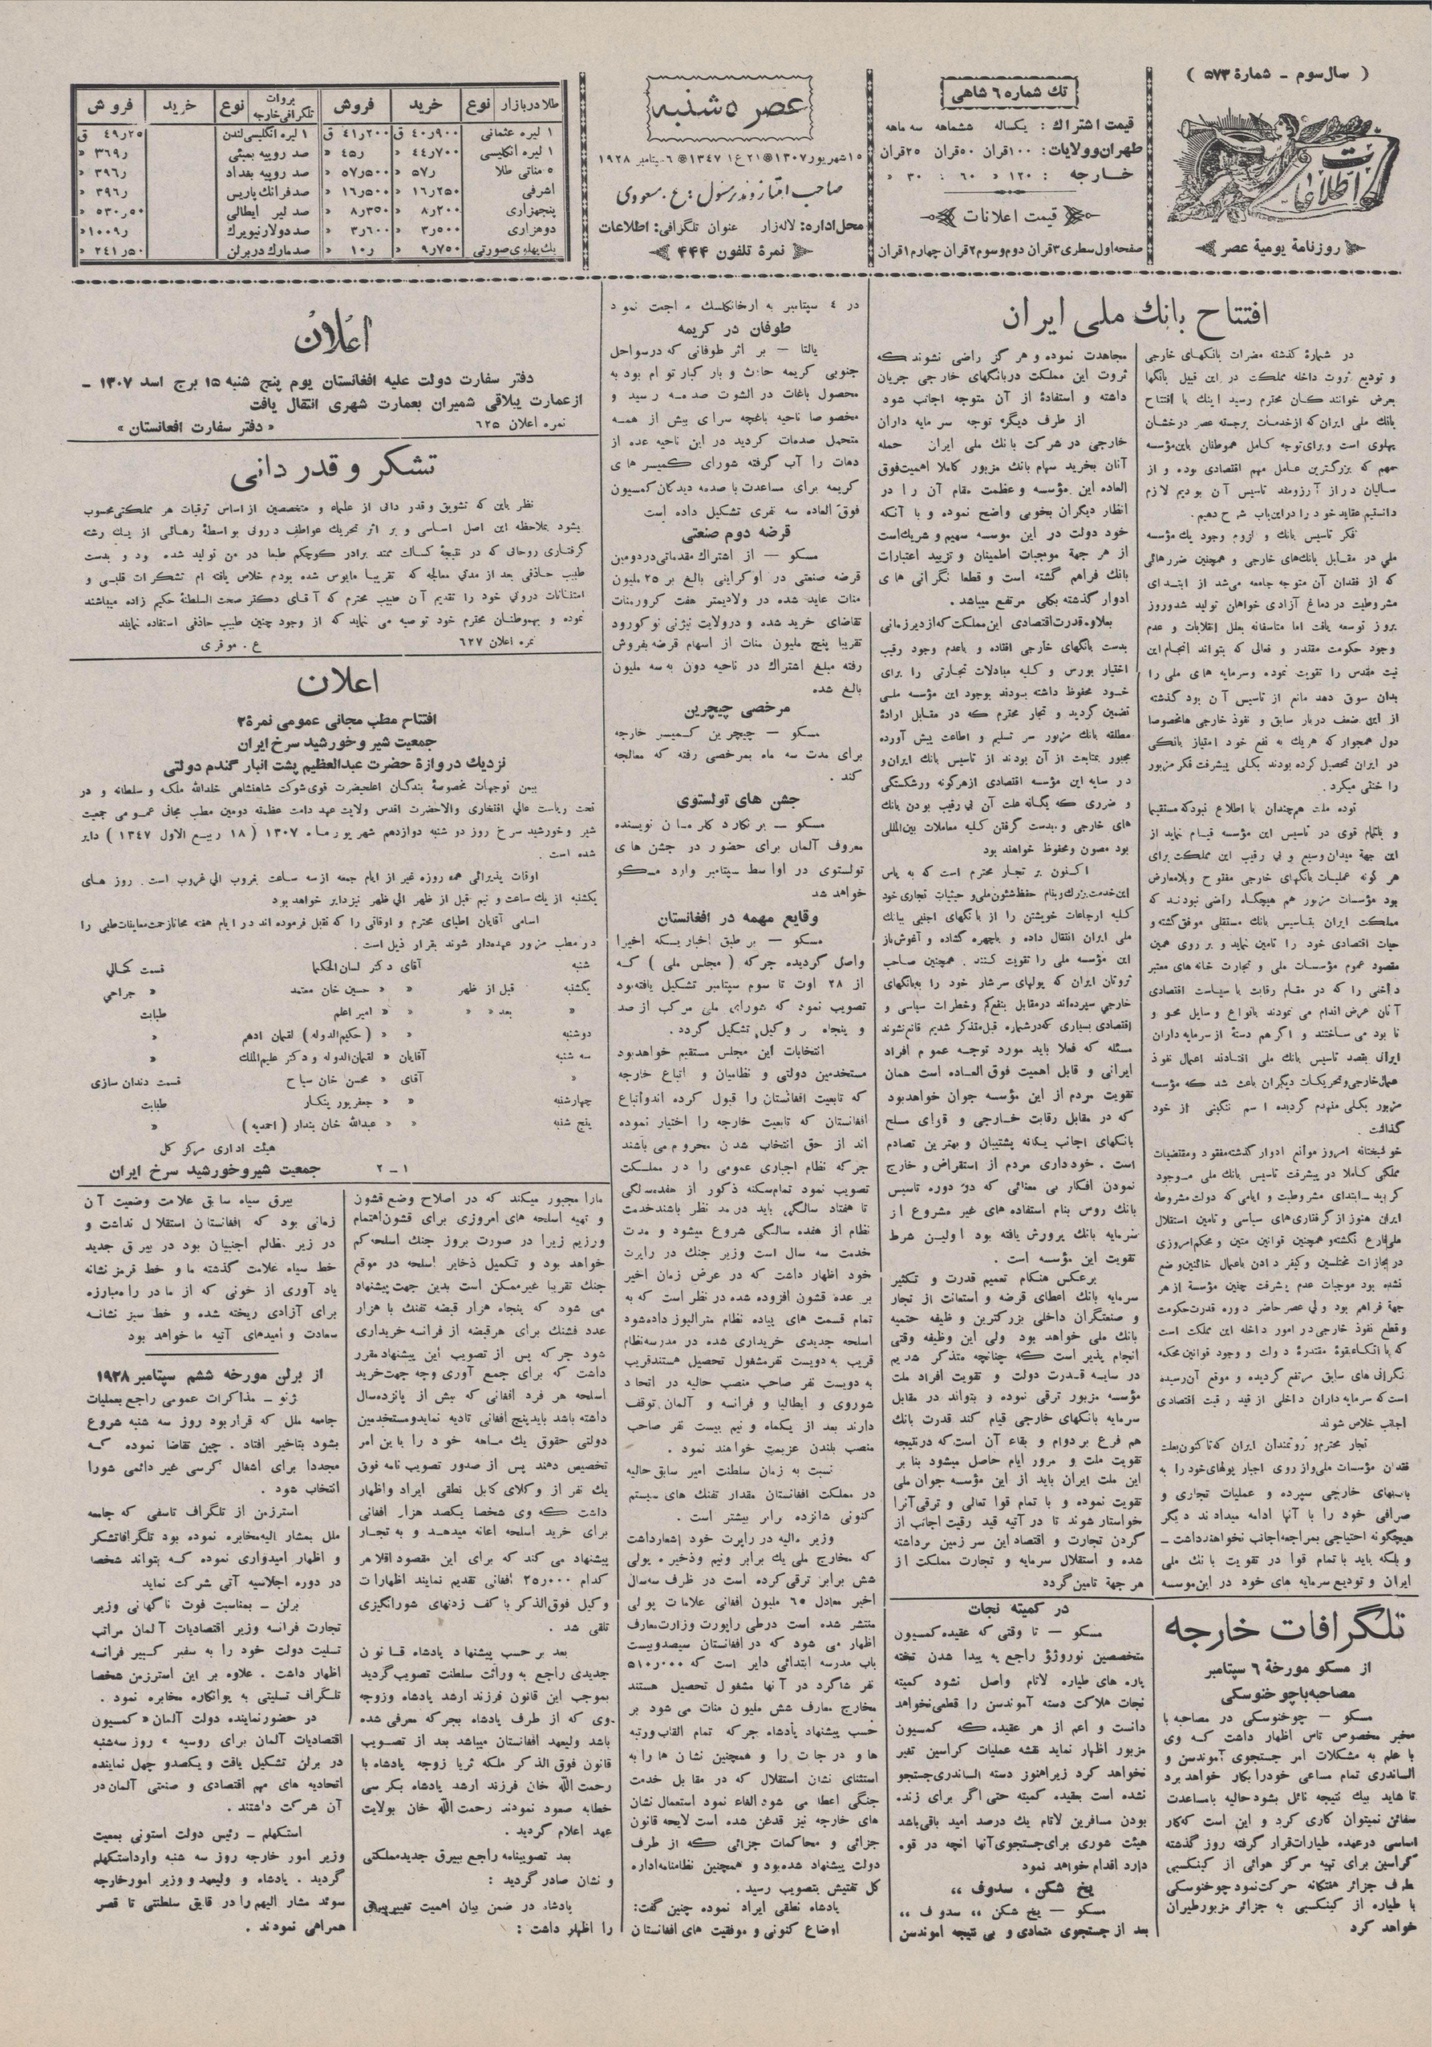 ( سال سوم - شمارهٔ ۵۷۳ )
اطلاعات
روزنامهٔ یومیهٔ عصر
تك شماره ۶ شاهی
قیمت اشتراك : یکساله ششماهه سه ماهه
طهران و ولایات : ۱۰۰ قران ۵۰ قران ۲۵ قران
خارجه : ۱۲۰ « ۶۰ : ۳۰ »
قیمت اعلانات
صفحه اول سطری ۳ قران دوم و سوم ۲ قران چهارم ۱ قران
عصر ۵ شنبه
۱۵ شهریور ۱۳۰۷ ❊ ۲۱ ع ۱ ۱۳۴۷ ❊ ۶ سپتامبر ۱۹۲۸
صاحب امتیاز و مدیر مسئول : ع . مسعودی
محل اداره : لاله زار عنوان تلگرافی : اطلاعات
نمرهٔ تلفون ۴۴۴
طلا در بازار نوع خرید فروش
۱ لیره عثمانی ۴۰ر۹۰۰ ق ۴۱ر۲۰۰ ق
۱ لیره انگلیسی ۴۴ر۷۰۰ « ۴۵ر «
۵ مناتی طلا ۵۷ر « ۵۷ر۵۰۰ «
اشرفی ۱۶ر۲۵۰ « ۱۶ر۵۰۰ «
پنجهزاری ۸ر۲۰۰ « ۸ر۳۵۰ «
دوهزاری ۳ر۵۰۰ « ۳ر۶۰۰ «
یك پهلوی صورتی ۹ر۷۵۰ « ۱۰ر «
بروات تلگرافی خارجه نوع خرید فروش
۱ لیره انگلیسی لندن ۴۹ر۲۵ ق
صد روپیه بمبئی ۳۶۹ر «
صد روپیه بغداد ۳۹۶ر «
صد فرانك پاریس ۳۹۶ر «
صد لیر ایطالی ۵۳۰ر۵۰ «
صد دولار نیویرك ۱۰۰۹ر «
صد مارك در برلن ۲۴۱ر۵۰ «
افتتاح بانك ملی ایران
در شمارهٔ گذشته مضرات بانکهای خارجی
و تودیع ثروت داخله مملکت در این قبیل بانکها
بعرض خوانندگان محترم رسید اینك با افتتاح
بانك ملی ایران که از خدمات برجسته عصر درخشان
پهلوی است و برای توجه کامل هموطنان باین مؤسسه
مهم که بزرگترین عامل مهم اقتصادی بوده و از
سالیان دراز آرزومند تاسیس آن بودیم لازم
دانستیم عقاید خود را در این باب شرح دهیم .
فکر تاسیس بانك و لزوم وجود یك مؤسسه
ملی در مقابل بانك‌های خارجی و همچنین ضررهائی
که از فقدان آن متوجه جامعه می‌شد از ابتدای
مشروطیت در دماغ آزادی خواهان تولید شد و روز
بروز توسعه یافت اما متاسفانه بعلل انقلابات و عدم
وجود حکومت مقتدر و فعالی که بتواند انجام این
نیت مقدس را تقویت نموده و سرمایه های ملی را
بدان سوق دهد مانع از تاسیس آن بود گذشته
از این ضعف دربار سابق و نفوذ خارجی ها مخصوصا
دول همجوار که هر یك به نفع خود امتیاز بانکی
در ایران تحصیل کرده بودند بکلی پیشرفت فکر مزبور
را خنثی میکرد .
توده ملت هم چندان با اطلاع نبود که مستقیما
و باتمام قوی در تاسیس این مؤسسه قیام نماید از
این جهة میدان وسیع و بی رقیب این مملکت برای
هر گونه عملیات بانکهای خارجی مفتوح و بلامعارض
بود مؤسسات مزبور هم هیچگاه راضی نبودند که
مملکت ایران بتاسیس بانك مستقلی موفق گشته و
حیات اقتصادی خود را تامین نماید و بر روی همین
مقصود عموم مؤسسات ملی و تجارت خانه های معتبر
داخلی را که در مقام رقابت با سیاست اقتصادی
آنان عرض اندام می نمودند بانواع و سایل محو و
نابود می ساختند و اگر هم دستهٔ از سرمایه داران
ایرانی بقصد تاسیس بانك ملی افتادند اعمال نفوذ
عمال خارجی و تحریکات دیگران باعث شد که مؤسسه
مزبور بکلی منهدم گردیده اسم ننگینی از خود
گذاشت .
خوشبختانه امروز موانع ادوار گذشته مفقود و مقتضیات
مملکتی کاملا در پیشرفت تاسیس بانك ملی موجود
گردید - ابتدای مشروطیت و ایامی که دولت مشروطه
ایران هنوز از گرفتاری‌های سیاسی و تامین استقلال
ملی فارغ نگشته و همچنین قوانین متین و محکم امروزی
در مجازات مختلسین و کیفر دادن باعمال خائنین وضع
نشده بود موجبات عدم پیشرفت چنین مؤسسهٔ از هر
جهة فراهم بود ولی عصر حاضر دوره قدرت حکومت
و قطع نفوذ خارجی در امور داخله این مملکت است
که با اتکاء بقوهٔ مقتدره دولت و وجود قوانین محکمه
نگرانی های سابق مرتفع گردیده و موقع آن رسیده
است که سرمایه داران داخلی از قید رقیت اقتصادی
اجانب خلاص شوند
تجار محترم و ثروتمندان ایران که تا کنون بعلت
فقدان مؤسسات ملی و از روی اجبار پولهای خود را به
بانکهای خارجی سپرده و عملیات تجاری و
صرافی خود را با آنها ادامه میدادند دیگر
هیچگونه احتیاجی بمراجعه اجانب نخواهند داشت -
و بلکه باید با تمام قوا در تقویت بانك ملی
ایران و تودیع سرمایه های خود در این موسسه
مجاهدت نموده و هر گز راضی نشوند که
ثروت این مملکت در بانکهای خارجی جریان
داشته و استفادهٔ از آن متوجه اجانب شود
از طرف دیگر توجه سرمایه داران
خارجی در شرکت بانك ملی ایران حمله
آنان بخرید سهام بانك مزبور کاملا اهمیت فوق
العاده این مؤسسه و عظمت مقام آن را در
انظار دیگران بخوبی واضح نموده و با آنکه
خود دولت در این موسسه سهیم و شریك است
از هر جهة موجبات اطمینان و تزیید اعتبارات
بانك فراهم گشته است و قطعا نگرانی های
ادوار گذشته بکلی مرتفع میباشد .
بعلاوه قدرت اقتصادی این مملکت که از دیرزمانی
بدست بانکهای خارجی افتاده و باعدم وجود رقیب
اختیار بورس و کلیه مبادلات تجارتی را برای
خود محفوظ داشته بودند بوجود این مؤسسه ملی
تضمین گردید و تجار محترم که در مقابل ارادهٔ
مطلقه بانك مزبور سر تسلیم و اطاعت پیش آورده
مجبور بمتابعت از آن بودند از تاسیس بانك ایران و
در سایه این مؤسسه اقتصادی از هرگونه ورشکستگی
و ضرری که یگانه علت آن بی رقیب بودن بانك
های خارجی و بدست گرفتن کلیه معاملات بین‌المللی
بود مصون و محفوظ خواهند بود
اکنون بر تجار محترم است که به پاس
این خدمت بزرك و بنام حفظ شئون ملی و حیثیات تجاری خود
کلیه ارجاعات خویشتن را از بانکهای اجنبی ببانك
ملی ایران انتقال داده و باچهره گشاده و آغوش باز
این مؤسسه ملی را تقویت کنند . همچنین صاحب
ثروتان ایران که پولهای سرشار خود را به بانکهای
خارجی سپرده‌اند در مقابل بنفع کم و خطرات سیاسی و
اقتصادی بسیاری که در شماره قبل متذکر شدیم قانع نشوند
مسئله که فعلا باید مورد توجه عموم افراد
ایرانی و قابل اهمیت فوق العاده است همان
تقویت مردم از این مؤسسه جوان خواهد بود
که در مقابل رقابت خارجی و قوای مسلح
بانکهای اجانب یگانه پشتیبان و بهترین تصادم
است . خود داری مردم از استقراض و خارج
نمودن افکار بی معنائی که در دوره تاسیس
بانك روس بنام استفاده های غیر مشروع از
سرمایه بانك پرورش یافته بود اولین شرط
تقویت این مؤسسه است .
برعکس هنگام تعمیم قدرت و تکثیر
سرمایه بانك اعطای قرضه و استعانت از تجار
و صنعتگران داخلی بزرگترین و ظیفه حتمیه
بانك ملی خواهد بود ولی این وظیفه وقتی
انجام پذیر است که چنانچه متذکر شدیم
در سایه قدرت دولت و تقویت افراد ملت
مؤسسه مزبور ترقی نموده و بتواند در مقابل
سرمایه بانکهای خارجی قیام کند قدرت بانك
هم فرع بر دوام و بقاء آن است که در نتیجه
تقویت ملت و مرور ایام حاصل میشود بنا بر
این ملت ایران باید از این مؤسسه جوان ملی
تقویت نموده و با تمام قوا تعالی و ترقی آنرا
خواستار شوند تا در آتیه قید رقیت اجانب از
گردن تجارت و اقتصاد این سر زمین برداشته
شده و استقلال سرمایه و تجارت مملکت از
هر جهة تامین گردد
تلگرافات خارجه
از مسکو مورخهٔ ۶ سپتامبر
مصاحبه با چوخنوسکی
مسکو - چوخنوسکی در مصاحبه با
مخبر مخصوص تاس اظهار داشت که وی
با علم به مشکلات امر جستجوی آموندسن و
الساندری تمام مساعی خود را بکار خواهد برد
تا شاید بیك نتیجه نائل بشود حالیه بامساعدت
سفائن نمیتوان کاری کرد و این است که کار
اساسی در عهده طیارات قرار گرفته روز گذشته
کراسین برای تهیه مرکز هوائی از کینکسبی
بطرف جزائر هفتگانه حرکت نمود چوخنوسکی
با طیاره از کینکسبی به جزائر مزبور طیران
خواهد کرد
در کمیته نجات
مسکو - تا وقتی که عقیده کمسیون
متخصصین نوروژژ راجع به پیدا شدن تخته
پاره های طیاره لاتام واصل نشود کمیته
نجات هلاکت دسته آموندسن را قطعی نخواهد
دانست و اعم از هر عقیده که کمسیون
مزبور اظهار نماید نقشه عملیات کراسین تغیر
نخواهد کرد زیرا هنوز دسته الساندری جستجو
نشده است بعقیده کمیته حتی اگر برای زنده
بودن مسافرین لاتام یك درصد امید باقی باشد
هیئت شوری برای جستجوی آنها آنچه در قوه
دارد اقدام خواهد نمود
یخ شکن ، سدوف ،،
مسکو - یخ شکن ،، سدوف ،،
بعد از جستجوی متمادی و بی نتیجه اموندسن
در ۴ سپتامبر به ارخانگلسك مراجعت نمود
طوفان در کریمه
یالتا - بر اثر طوفانی که در سواحل
جنوبی کریمه حادث و با رگبار توام بود به
محصول باغات در الشوت صدمه رسید و
مخصوصا ناحیه باغچه سرای بیش از همه
متحمل صدمات گردید در این ناحیه عده از
دهات را آب گرفته شورای کمیسر های
کریمه برای مساعدت با صدمه دیدگان کمسیون
فوق العاده سه نفری تشکیل داده است
قرضه دوم صنعتی
مسکو - از اشتراك مقدماتی در دومین
قرضه صنعتی در اوکراینی بالغ بر ۲۵ ملیون
منات عاید شده در ولادیمتر هفت کرور منات
تقاضای خرید شده و در ولایت نیژنی نوگورود
تقریبا پنج ملیون منات از اسهام قرضه بفروش
رفته مبلغ اشتراك در ناحیه دون به سه ملیون
بالغ شده
مرخصی چیچرین
مسکو - چیچرین کمیسر خارجه
برای مدت سه ماه بمرخصی رفته که معالجه
کند .
جشن های تولستوی
مسکو - برنگارد کلرمان نویسنده
معروف آلمان برای حضور در جشن های
تولستوی در اواسط سپتامبر وارد مسکو
خواهد شد
وقایع مهمه در افغانستان
مسکو - بر طبق اخباریکه اخیرا
واصل گردیده جرکه ( مجلس ملی ) که
از ۲۸ اوت تا سوم سپتامبر تشکیل یافته بود
تصویب نمود که شورای ملی مرکب از صد
و پنجاه نفر وکیل تشکیل گردد .
انتخابات این مجلس مستقیم خواهد بود
مستخدمین دولتی و نظامیان و اتباع خارجه
که تابعیت افغانستان را قبول کرده اند و اتباع
افغانستان که تابعیت خارجه را اختیار نموده
اند از حق انتخاب شدن محروم می باشند
جرکه نظام اجباری عمومی را در مملکت
تصویب نمود تمام سکنه ذکور از هفده سالگی
تا هفتاد سالگی باید در مد نظر باشند خدمت
نظام از هفده سالگی شروع میشود و مدت
خدمت سه سال است وزیر جنك در راپرت
خود اظهار داشت که در عرض زمان اخیر
بر عده قشون افزوده شده در نظر است که به
تمام قسمت های پیاده نظام مترالیوز داده شود
اسلحه جدیدی خریداری شده در مدرسه نظام
قریب به دویست نفر مشغول تحصیل هستند قریب
به دویست نفر صاحب منصب حالیه در اتحاد
شوروی و ایطالیا و فرانسه و آلمان توقف
دارند بعد از یکماه و نیم بیست نفر صاحب
منصب بلندن عزیمت خواهند نمود .
نسبت به زمان سلطنت امیر سابق حالیه
در مملکت افغانستان مقدار تفنك های سیستم
کنونی شانزده برابر بیشتر است .
وزیر مالیه در راپرت خود اشعار داشت
که مخارج ملی یك برابر و نیم و ذخیره پولی
شش برابر ترقی کرده است در ظرف سه سال
اخیر معادل ۶۵ ملیون افغانی علامات پولی
منتشر شده است در طی راپورت وزارت معارف
اظهار می شود که در افغانستان سیصد و بیست
باب مدرسه ابتدائی دایر است که ۵۱۰ر۰۰۰
نفر شاگرد در آنها مشغول تحصیل هستند
مخارج معارف شش ملیون منات می شود بر
حسب پیشنهاد پادشاه جرکه تمام القاب و رتبه
ها و درجات را و همچنین نشان ها را به
استثنای نشان استقلال که در مقابل خدمت
جنگی اعطا می شود الغاء نمود استعمال نشان
های خارجه نیز قدغن شده است لایحه قانون
جزائی و محاکمات جزائی که از طرف
دولت پیشنهاد شده بود و همچنین نظامنامه اداره
کل تفتیش بتصویب رسید .
پادشاه نطقی ایراد نموده چنین گفت :
اوضاع کنونی و موفقیت های افغانستان
اعلان
دفتر سفارت دولت علیه افغانستان یوم پنج شنبه ۱۵ برج اسد ۱۳۰۷ -
از عمارت ییلاقی شمیران بعمارت شهری انتقال یافت
نمره اعلان ۶۲۵ « دفتر سفارت افغانستان »
تشکر و قدر دانی
نظر باین که تشویق و قدر دانی از علماء و متخصصین از اساس ترقیات هر مملکتی محسوب
یشود بملاحظه این اصل اساسی و بر اثر تحریك عواطف درونی بواسطهٔ رهائی از یك رشته
گرفتاری روحانی که در نتیجهٔ کسالت ممتد برادر کوچکم طبعا در من تولید شده بود و بدست
طبیب حاذقی بعد از مدتی معالجه که تقریبا مایوس شده بودم خلاص یافته ام تشکرات قلبی و
امتنانات درونی خود را تقدیم آن طبیب محترم که آقای دکتر صحت السلطنهٔ حکیم زاده میباشند
نموده و بهموطنان محترم خود توصیه می نماید که از وجود چنین طبیب حاذقی استفاده نمایند
نمره اعلان ۶۲۷ ع . موقری
اعلان
افتتاح مطب مجانی عمومی نمرهٔ ۲
جمعیت شیر و خورشید سرخ ایران
نزدیك دروازهٔ حضرت عبدالعظیم پشت انبار گندم دولتی
بیمن توجهات مخصوصهٔ بندگان اعلیحضرت قوی شوکت شاهنشاهی خلدالله ملکه و سلطانه و در
تحت ریاست عالی افتخاری والاحضرت اقدس ولایت عهد دامت عظمته دومین مطب مجانی عمومی جمعیت
شیر و خورشید سرخ روز دو شنبه دوازدهم شهریور ماه ۱۳۰۷ ( ۱۸ ربیع الاول ۱۳۴۷ ) دایر
شده است .
اوقات پذیرائی همه روزه غیر از ایام جمعه از سه ساعت بغروب الی غروب است . روز های
یکشنبه از یك ساعت و نیم قبل از ظهر الی ظهر نیز دایر خواهد بود
اسامی آقایان اطبای محترم و اوقاتی را که تقبل فرموده اند در ایام هفته مجانا زحمت معاینات طبی را
در مطب مزبور عهده‌دار شوند بقرار ذیل است .
شنبه آقای دکتر لسان الحکما قسمت کحالی
یکشنبه قبل از ظهر « « حسین خان معتمد « جراحی
« بعد « « « « امیر اعلم طبابت
دوشنبه « « ( حکیم الدوله ) لقمان ادهم «
سه شنبه آقایان « لقمان الدوله و دکتر علیم الملك «
« آقای « محسن خان سیاح قسمت دندان سازی
چهارشنبه « « جعفرپور ینکار طبابت
پنج شنبه « « عبدالله خان بندار ( احمدیه ) «
هیئت اداری مرکز کل
۱ - ۲ جمعیت شیر و خورشید سرخ ایران
مارا مجبور میکند که در اصلاح وضع قشون
و تهیه اسلحه های امروزی برای قشون اهتمام
ورزیم زیرا در صورت بروز جنك اسلحه کم
خواهد بود و تکمیل ذخایر اسلحه در موقع
جنك تقریبا غیر ممکن است بدین جهت پیشنهاد
می شود که پنجاه هزار قبضه تفنك با هزار
عدد فشنك برای هر قبضه از فرانسه خریداری
شود جرکه پس از تصویب این پیشنهاد مقرر
داشت که برای جمع آوری وجه جهت خرید
اسلحه هر فرد افغانی که بیش از پانزده سال
داشته باشد باید پنج افغانی تادیه نماید و مستخدمین
دولتی حقوق یك ماهه خود را باین امر
تخصیص دهند پس از صدور تصویب نامه فوق
یك نفر از وکلای کابل نطقی ایراد و اظهار
داشت که وی شخصا یکصد هزار افغانی
برای خرید اسلحه اعانه میدهد و به تجار
پیشنهاد می کند که برای این مقصود اقلا هر
کدام ۲۵ر۰۰۰ افغانی تقدیم نمایند اظهارات
وکیل فوق الذکر با کف زدنهای شورانگیزی
تلقی شد .
بعد بر حسب پیشنهاد پادشاه قانون
جدیدی راجع به وراثت سلطنت تصویب گردید
بموجب این قانون فرزند ارشد پادشاه و زوجه
وی که از طرف پادشاه بجرکه معرفی شده
باشد ولیعهد افغانستان میباشد بعد از تصویب
قانون فوق الذکر ملکه ثریا زوجه پادشاه با
رحمت الله خان فرزند ارشد پادشاه بکرسی
خطابه صعود نمودند رحمت الله خان بولایت
عهد اعلام گردید .
بعد تصویبنامه راجع ببیرق جدید مملکتی
و نشان صادر گردید :
پادشاه در ضمن بیان اهمیت تغییر بیرق
را اظهار داشت :
بیرق سیاه سابق علامت وضعیت آن
زمانی بود که افغانستان استقلال نداشت و
در زیر مظالم اجنبیان بود در بیرق جدید
خط سیاه علامت گذشته ما و خط قرمز نشانه
یاد آوری از خونی که از ما در راه مبارزه
برای آزادی ریخته شده و خط سبز نشانه
سعادت و امیدهای آتیه ما خواهد بود
از برلن مورخه ششم سپتامبر ۱۹۲۸
ژنو - مذاکرات عمومی راجع بعملیات
جامعه ملل که قرار بود روز سه شنبه شروع
بشود بتاخیر افتاد . چین تقاضا نموده که
مجددا برای اشغال کرسی غیر دائمی شورا
انتخاب شود .
استرزمن از تلگراف تاسفی که جامعه
ملل بمشار الیه مخابره نموده بود تلگرافا تشکر
و اظهار امیدواری نموده که بتواند شخصا
در دوره اجلاسیه آتی شرکت نماید
برلن - بمناسبت فوت ناگهانی وزیر
تجارت فرانسه وزیر اقتصادیات آلمان مراتب
تسلیت دولت خود را به سفیر کبیر فرانسه
اظهار داشت . علاوه بر این استرزمن شخصا
تلگراف تسلیتی به پوانکاره مخابره نمود .
در حضور نماینده دولت آلمان « کمسیون
اقتصادیات آلمان برای روسیه » روز سه‌شنبه
در برلن تشکیل یافت و یکصد و چهل نماینده
اتحادیه های مهم اقتصادی و صنعتی آلمان در
آن شرکت داشتند .
استکهلم - رئیس دولت استونی بمعیت
وزیر امور خارجه روز سه شنبه وارد استکهلم
گردید . پادشاه و ولیعهد و وزیر امور خارجه
سوئد مشار الیهم را در قایق سلطنتی تا قصر
همراهی نمودند .